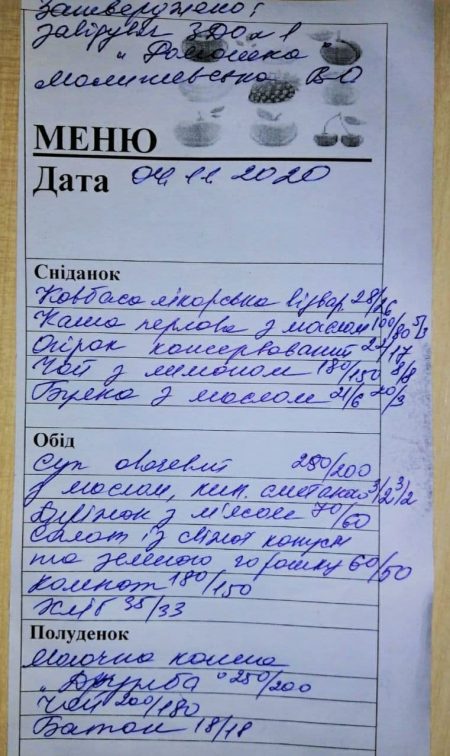 Затверджено:
Завідувач ЗДО №1
"Ромашка"
Малишевська ВО
МЕНЮ
Дата 04 11 2020
Сніданок
Ковбаса лікарська відвар 28/26
Каша перлова з маслом 100/80 5/3
Огірок консервований 22/17
Чай з лимоном 180/150 8/8
Булка з маслом 21/6 20/3
Обід
Суп овочевий 250/200
з маслом, кип. сметаной 3/2 3/2
з м'ясом 70/60
Салат із свіжої капусти
та зеленого горошку 60/50
Компот 180/150
Хліб 35/33
Полуденок
Молочна каша
"Дружба" 250/200
Чай 200/180
Батон 18/18